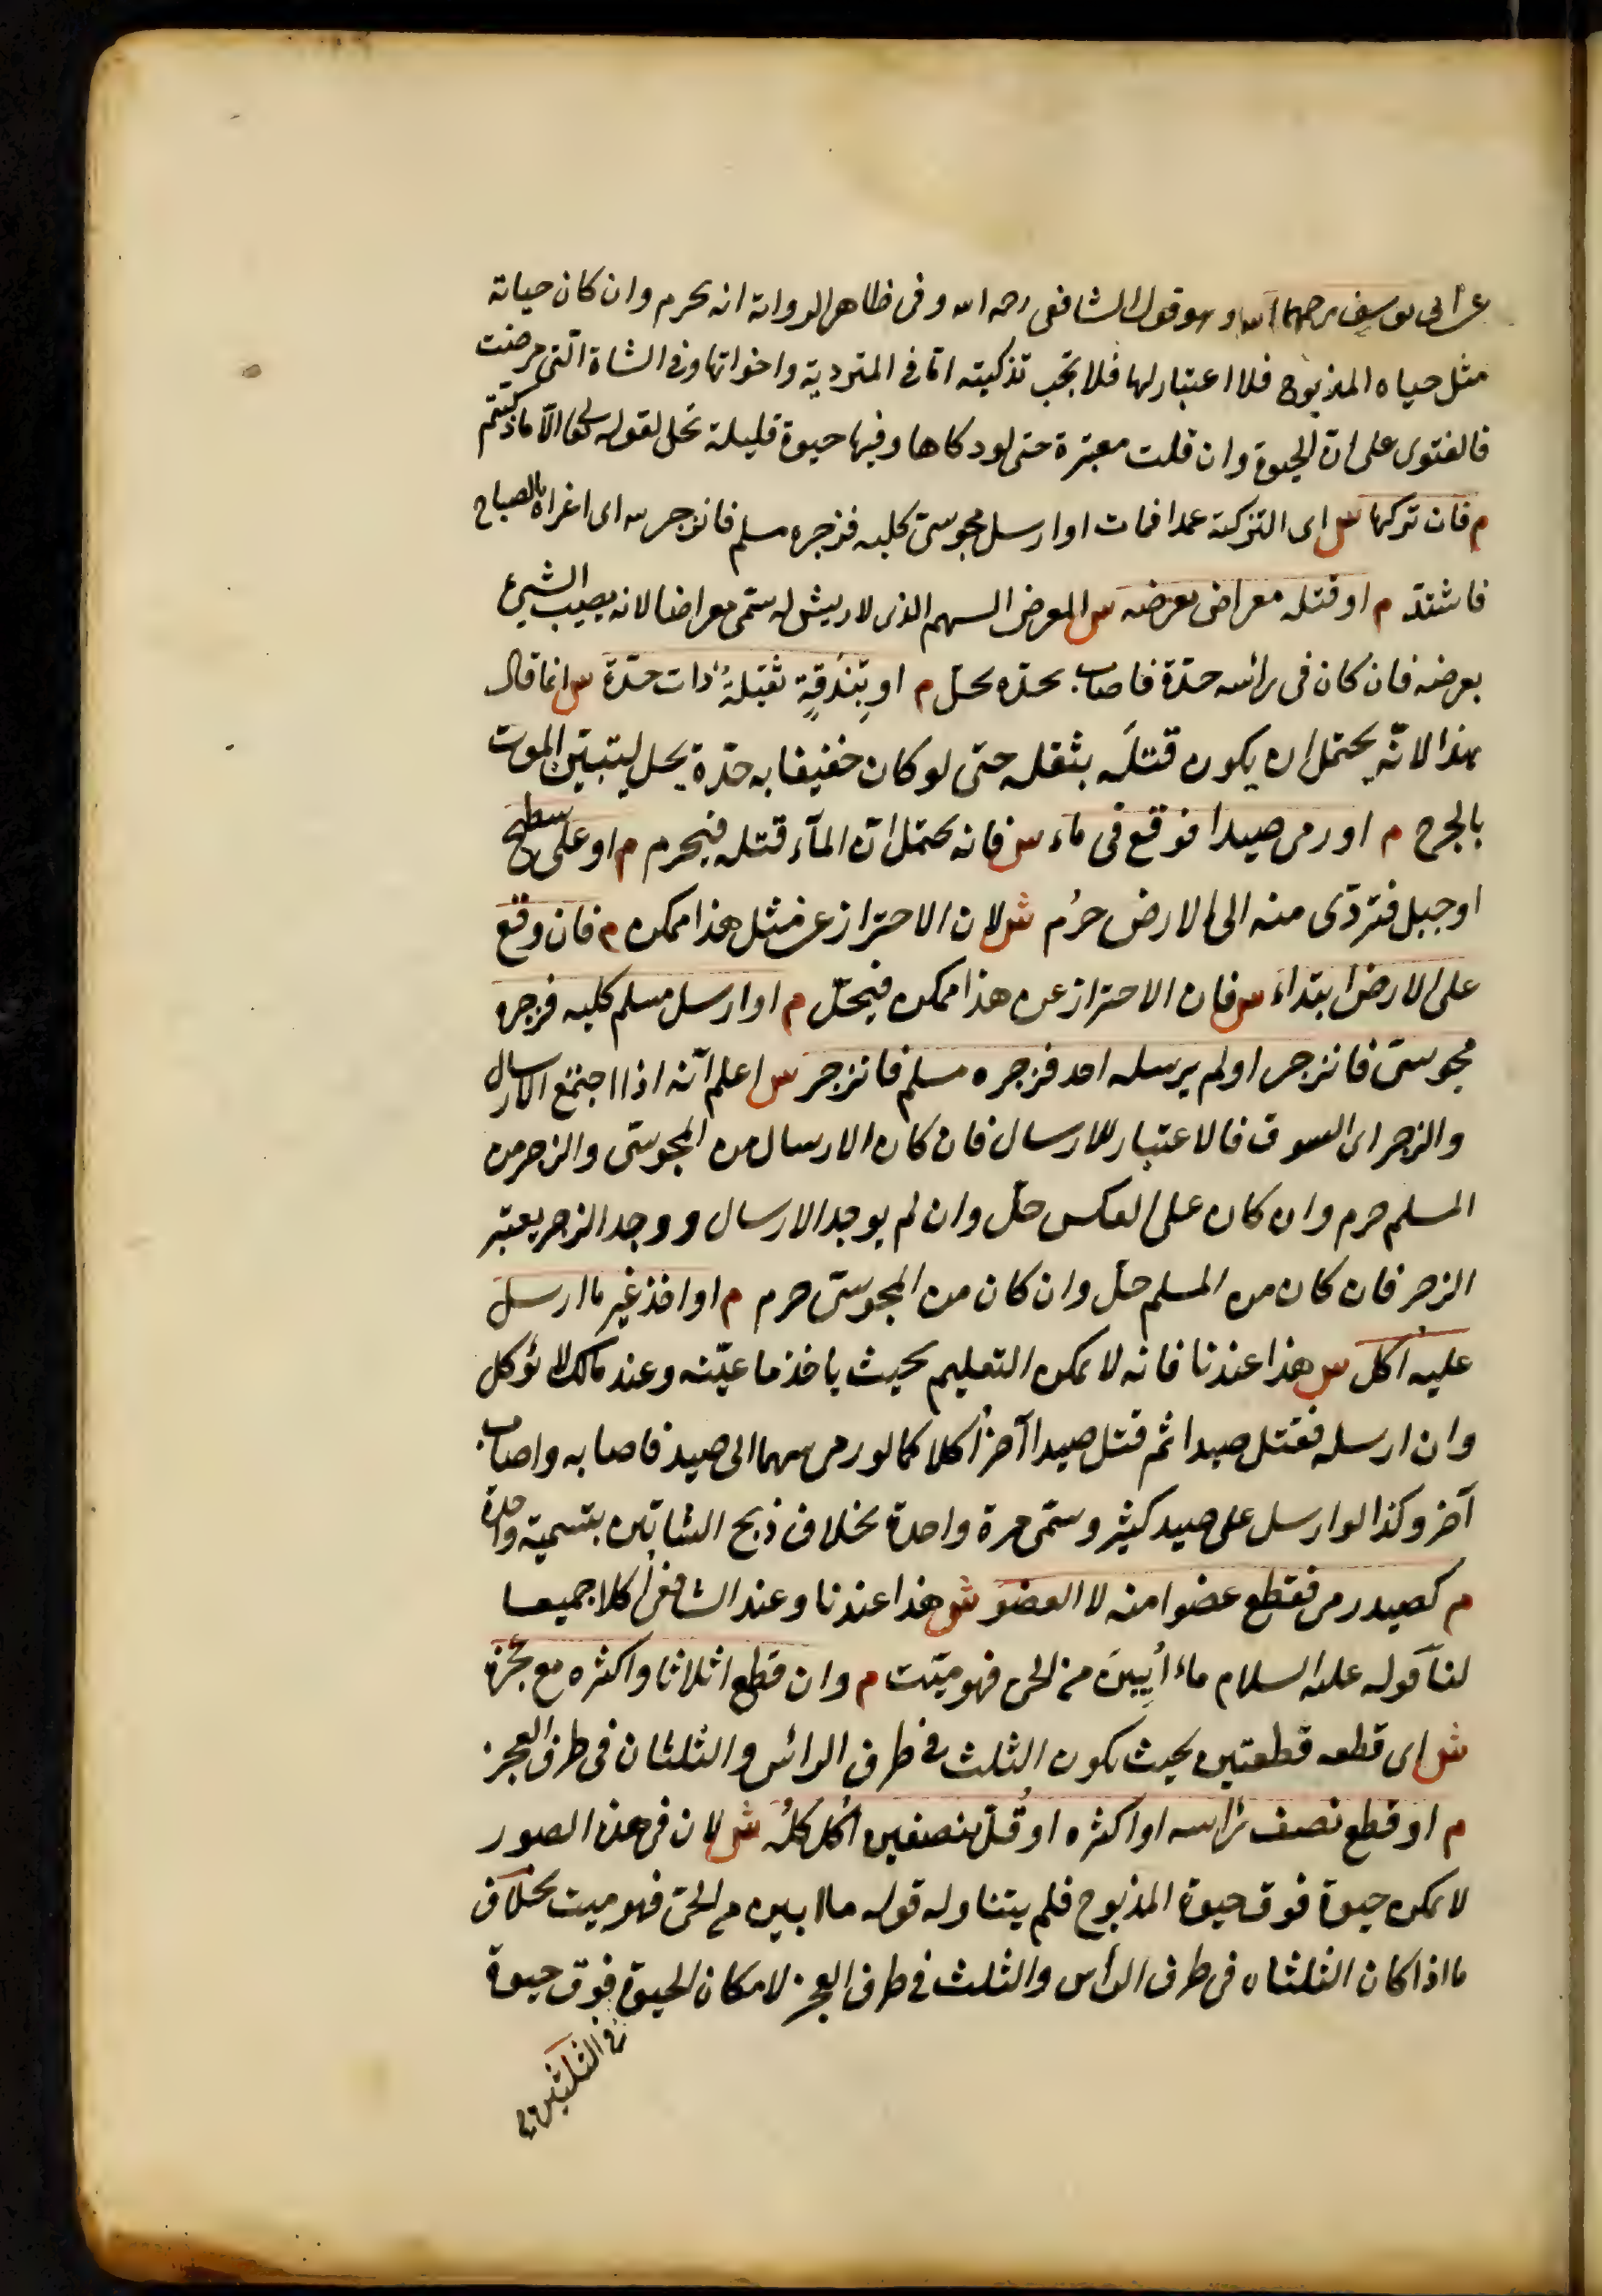 عن ابى يوسف رحمهما الله وهو قول الشافعى رحمه الله وفى ظاهر الرواية انه يحرم وان كان حياته
مثل حياه المذبوح فلا اعتبار لها فلا تجب تذكيته امّا فى المتردية واخواتها وفى الشاة التى مرضت
فالفتوى على انّ الحيوة وان قلت معتبرة حتى لو دكاها وفيها حيوة قليلة تحل لقوله تعالى الّا ما ذكيتم
م فان تركها س اى التزكية عمدا فمات او ارسل مجوسىّ كلبه فزجره مسلم فانزجر س اى اغراه بالصياح
فاشتدّ م او قتله معراض بعرضه س المعرض السهم الذى لا ريش له سمّى معراضا لانه يصيب الشيئ
بعرضه فان كان فى رائسه حدّة فاصاب بحدّه يحلّ م او بِنْدُقةٍ ثقيلةٌ ذات حدّة س انما قال
هذا لانّه يحتمل ان يكون قتلَه بثقله حتى لو كان خفيفا به حدّة يحل ليتبيّن الموت
بالجرح م او رمى صيدا فوقع فى ماء س فانه يحتمل انّ المآء قتله فيحرم م او على سطح
او جبل فتردّى منه الى الارض حرُم ش لان الاحتراز عن مثل هذا ممكن م فان وقع
على الارض ابتداء س فان الاحتراز عن هذا ممكن فيحلّ م او ارسل مسلم كلبه فزجره
مجوسىّ فانزجر او لم يرسله احد فزجره مسلم فانزجر س اعلم انّه اذا اجتمع الارسال
والزجر اى السوق فالاعتبار للارسال فان كان الارسال من المجوسىّ والزجر من
المسلم حرم وان كان على العكس حلّ وان لم يوجد الارسال ووجد الزجر يعتبر
الزجر فان كان من المسلم حلّ وان كان من المجوسىّ حرم م او اخذ غير ما ارسل
عليه اكل س هذا عندنا فانه لا يمكن التعليم بحيث ياخذ ما عيّنه وعند مالك لا يؤكل
وان ارسله فقتل صيدا ثم قتل صيدا آخر اُكلا كما لو رمى سهما الى صيد فاصابه واصاب
آخر وكذا لو ارسل على صيد كثير وسمّى مرة واحدة بخلاف ذبح الشاتين بتسمية واحدة
م كصيد رمى فقطع عضوا منه لا العضو ش هذا عندنا وعند الشافعى اُكلا جميعا
لنا قوله عليه السلام ما اُبِينَ من الحى فهو ميّت م وان قطع اثلاثا واكثره مع عجزه
ش اى قطعه قطعتين بحيث يكون الثلث فى طرف الرائس والثلثان فى طرف العجز
م او قطع نصف رائسه او اكثره او قُدّ بنصفين اُكل كلُّه ش لان فى هذه الصور
لا يمكن حيوة فوق حيوة المذبوح فلم يتناوله قوله ما ابين من الحىّ فهو ميت بخلاف
ما اذا كان الثلثان فى طرف الرأس والثلث فى طرف العجز لامكان الحيوة فوق حيوة
فى الثلثين